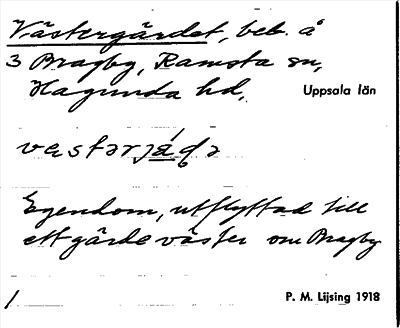 Västergärdet, beb. å
3 Bragby, Ramsta sn,
Hagunda hd,
Uppsala län
vastərjáɖə
Egendom, utflyttad till
ett gärde väster om Bragby
1
P. M. Lijsing 1918